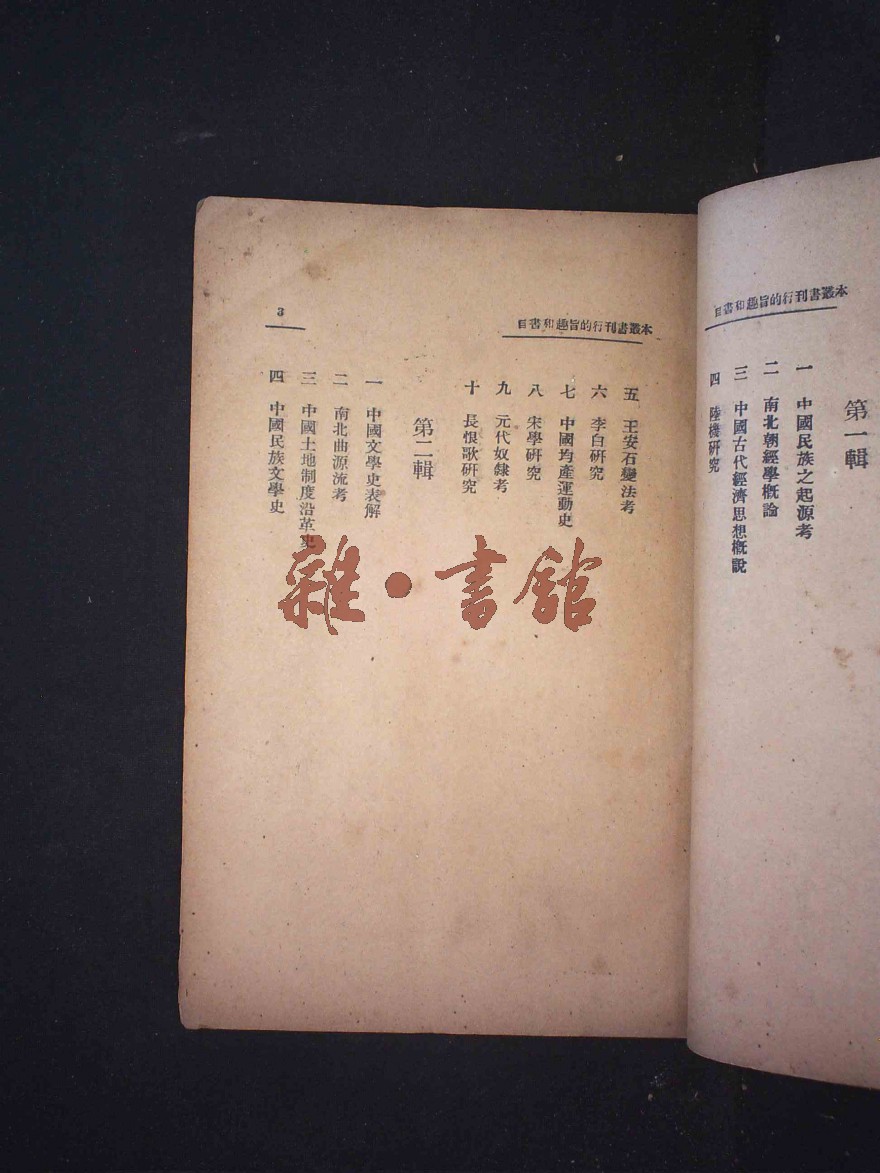 本叢書刊行的旨趣和書目
第一輯
一 中國民族之起源考
二 南北朝經學概論
三 中國古代經濟思想概說
四 陸機研究
本叢書刊行的旨趣和書目
3
五 王安石變法考
六 李白研究
七 中國均產運動史
八 宋學研究
九 元代奴隸考
十 長恨歌研究
第二輯
一 中國文學史表解
二 南北曲源流考
三 中國土地制度沿革史
四 中國民族文學史
雜·書館